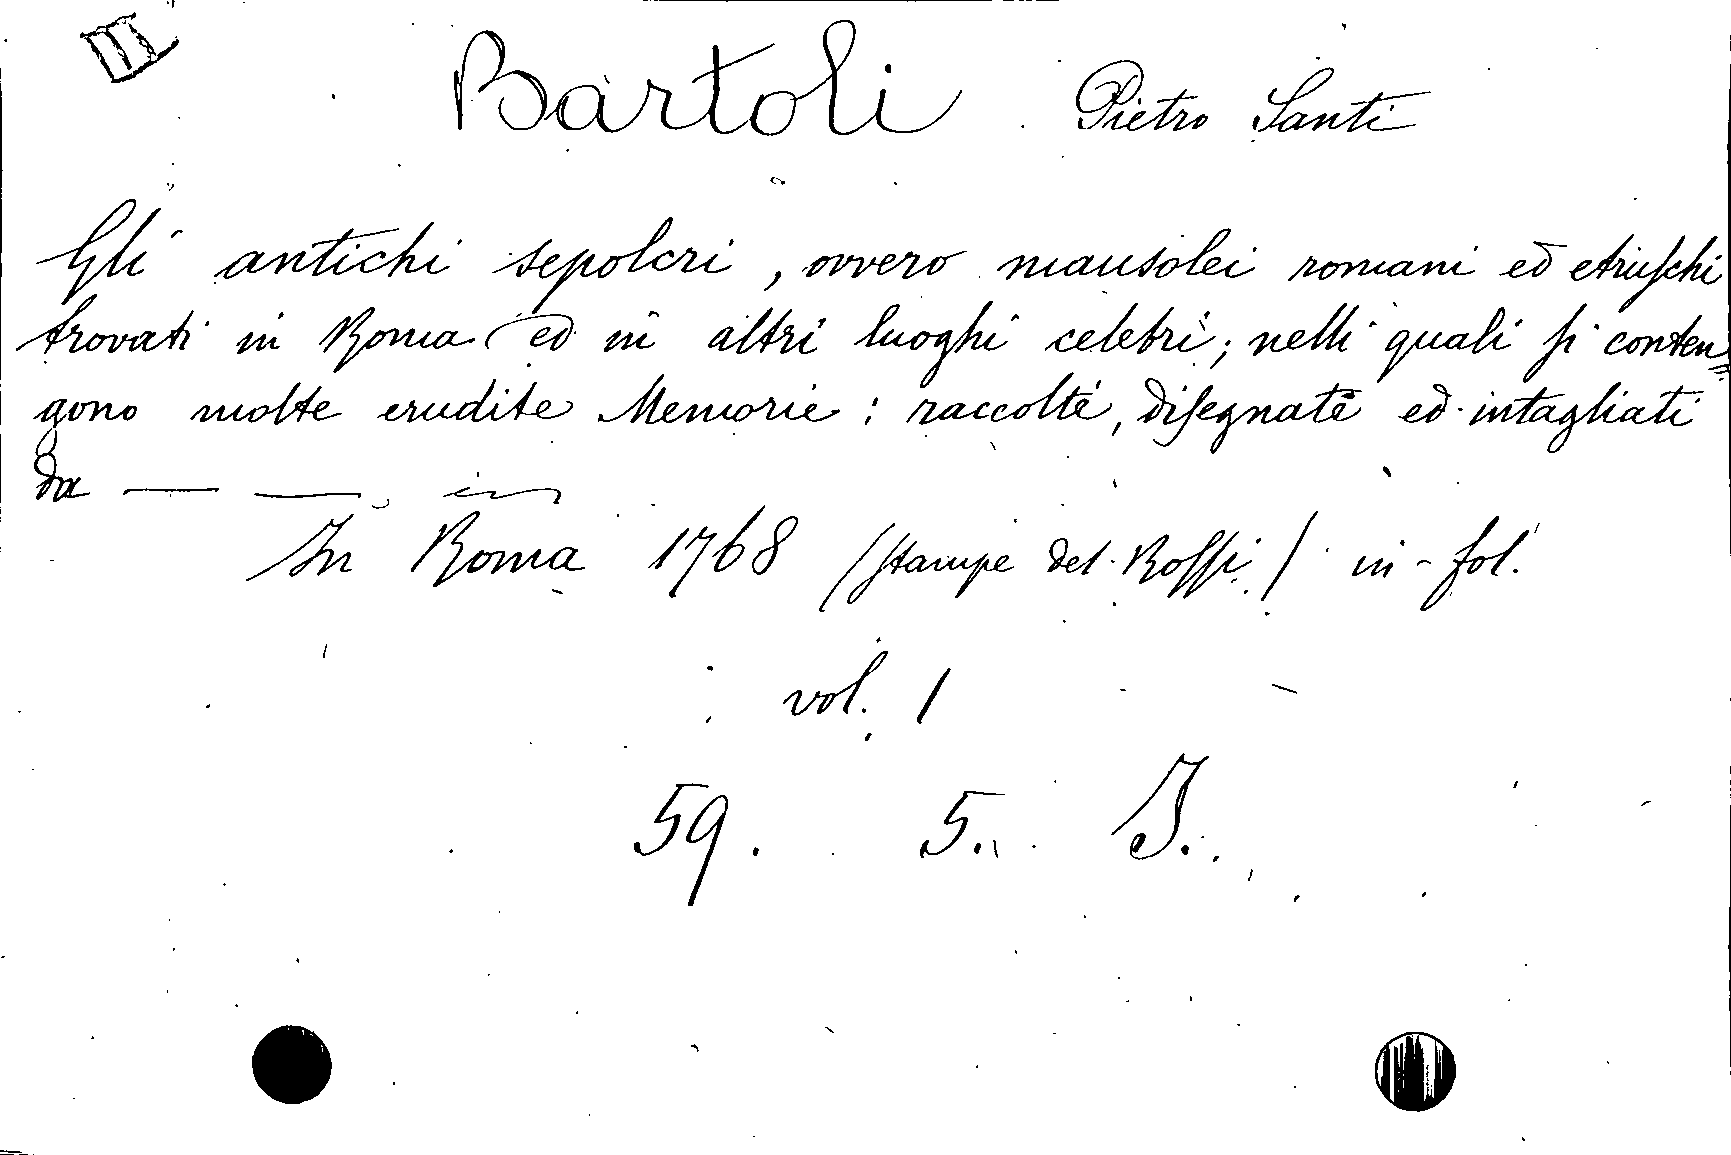 III
Bartoli Pietro Santi
Gli antichi sepolcri, ovvero mausolei romani ed etruſchi
trovati in Roma ed in altri luoghi celebri; nelli quali ſi conten=
gono molte erudite Memorie: raccolte, diſegnate ed intagliati
da — —, in
In Roma 1768 (ſtampe del Roſſi) in-fol.
vol. 1
59. 5. I.